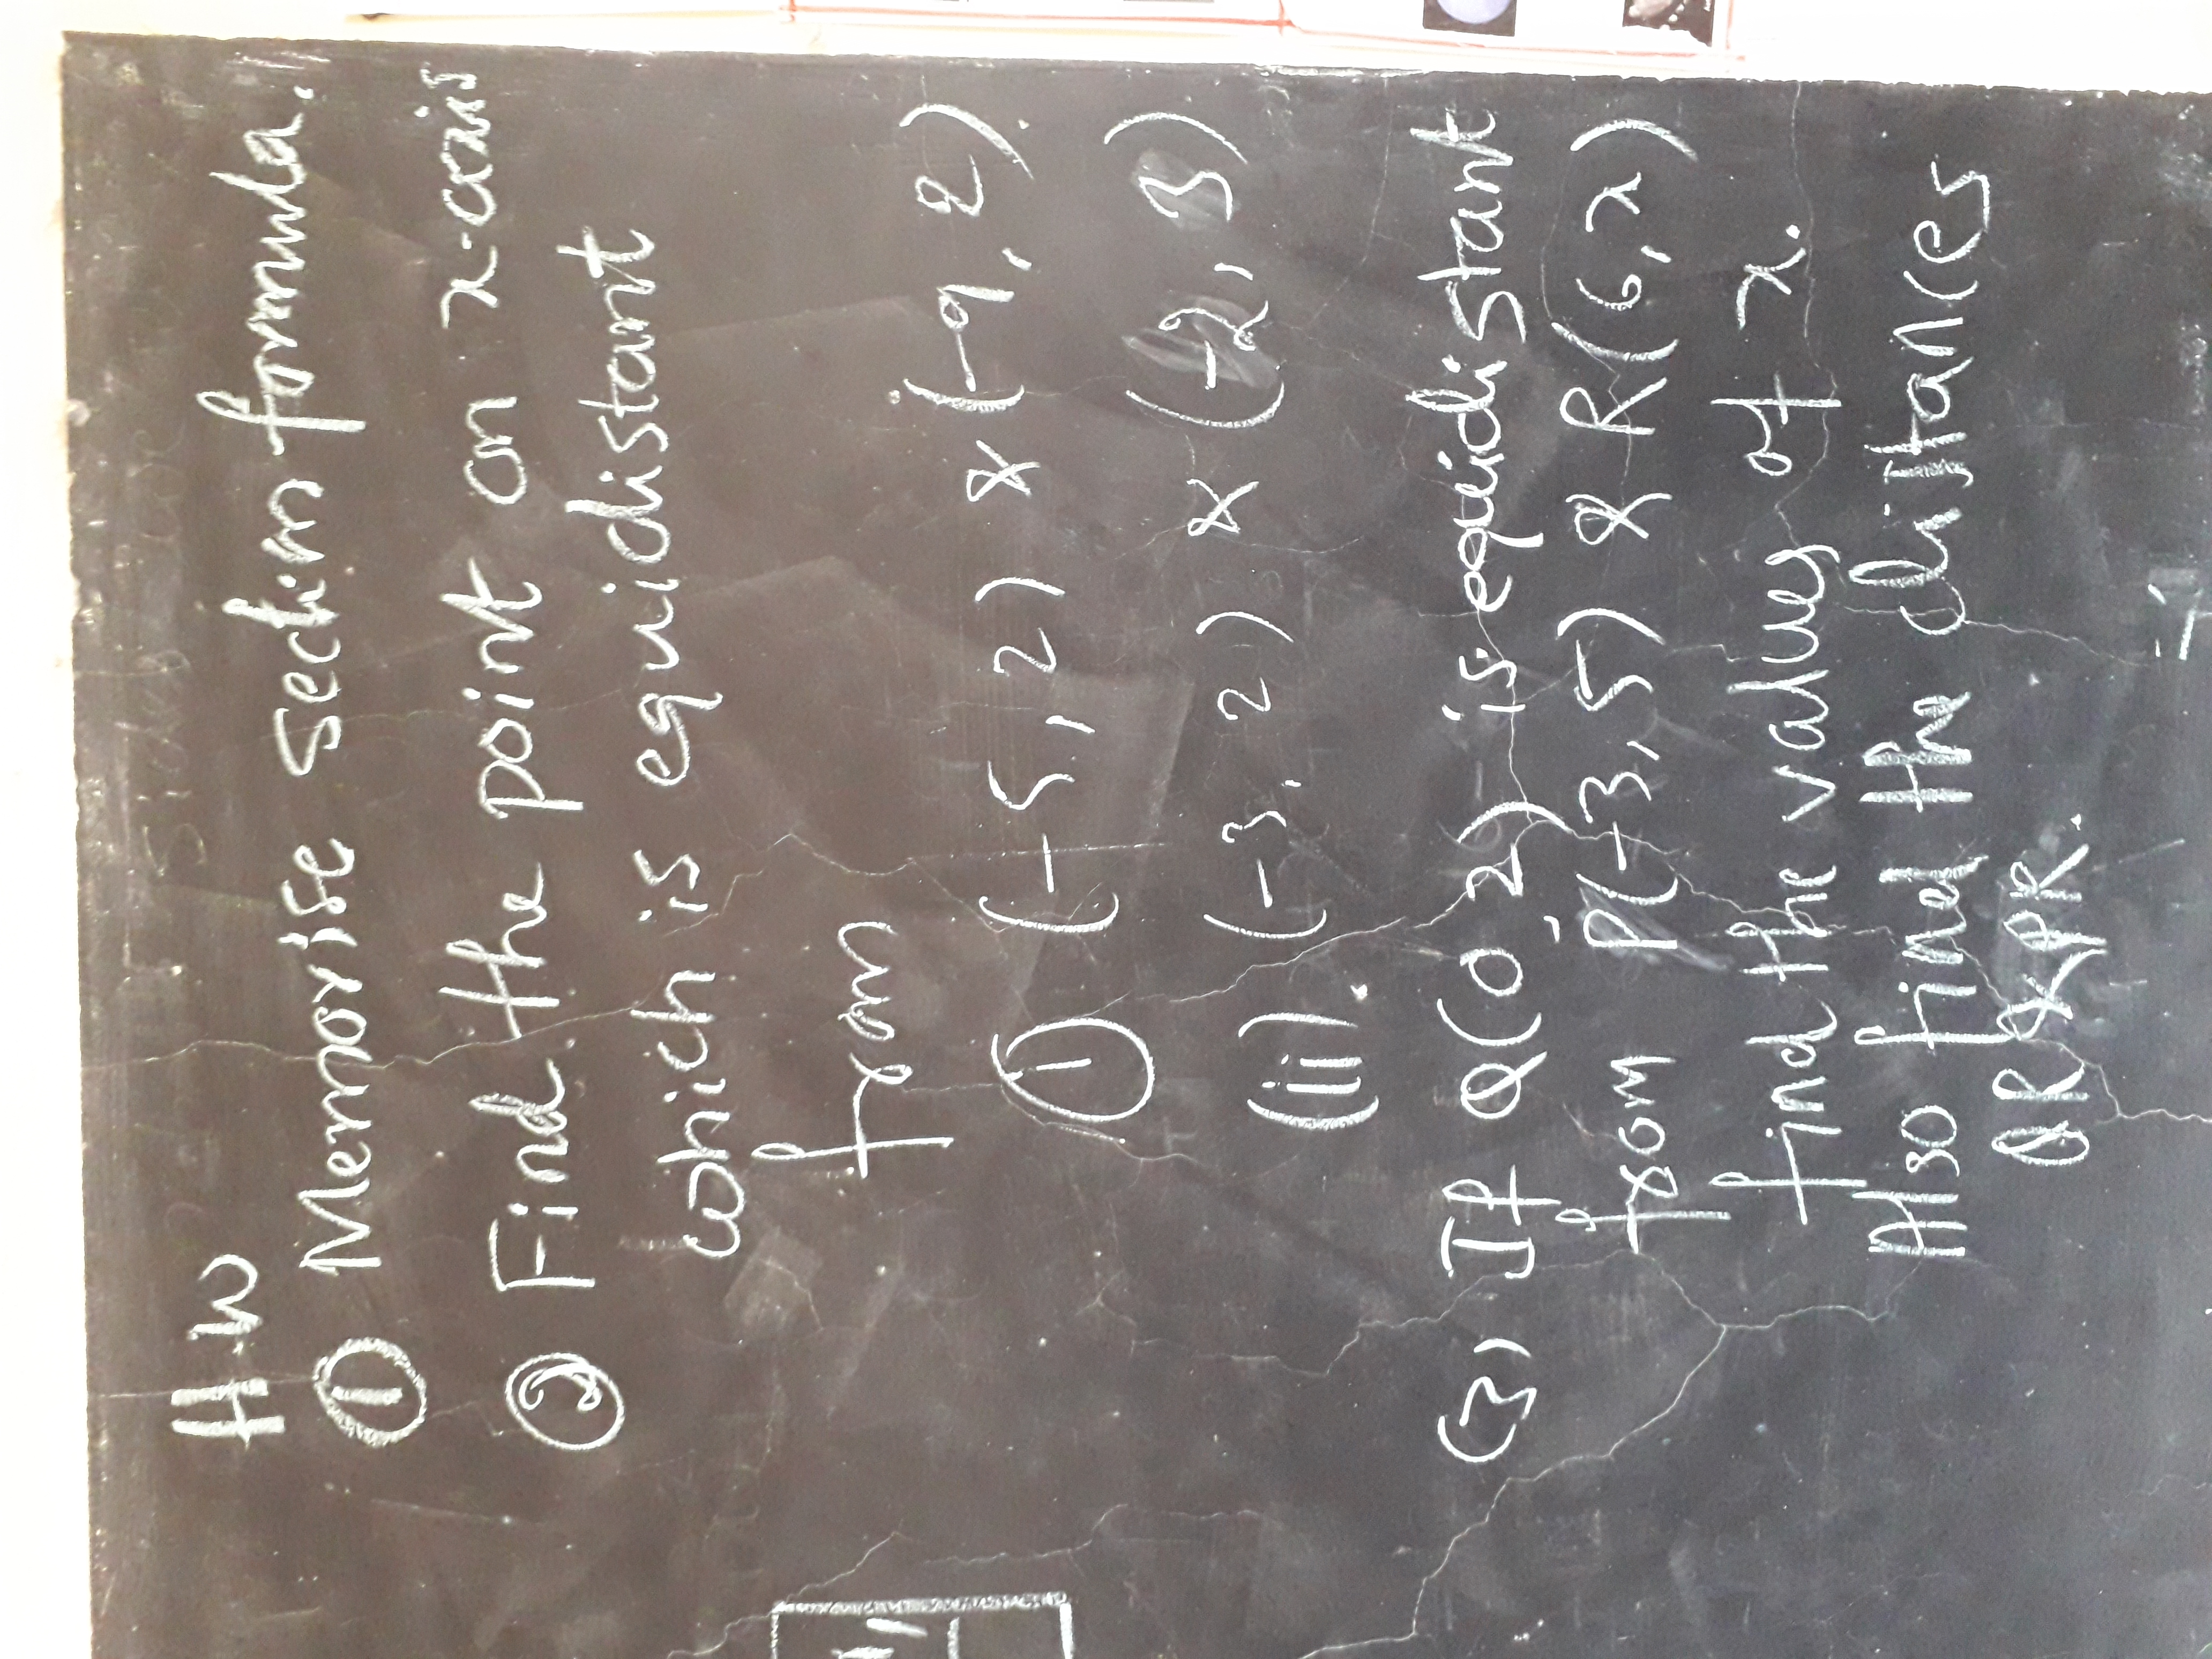 H.W
① Memorise section formula.
② Find the point on x-axis
which is equidistant
from
① (-5, 2) & (-9, 2).
(ii). (-3, 2) & (-2, 3)
(3) If Q(0 2) is equidistant
from P(-3, 5) & R(6, x)
find the values of x.
Also find the distances
QR & PR.